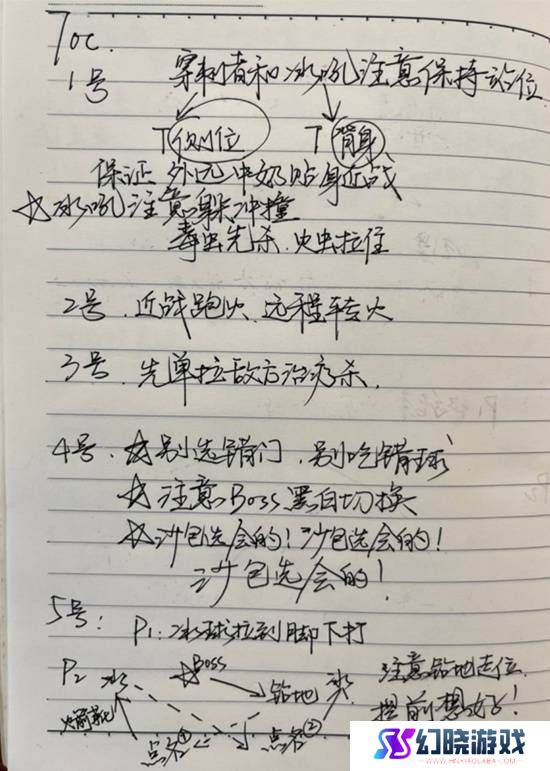 Toc.
1号 穿刺者和冰吼注意保持站位
T侧位 T背身
保证外 中奶贴身近战
☆冰吼注意躲冲撞
毒虫先杀.火虫拉住
2号.近战跑火、远程转火
3号.先单拉敌方治疗杀.
4号.☆别选错门.别吃错球
☆注意Boss黑白切换
☆沙包选会的!沙包选会的!
沙包选会的!
5号: P1:冰球拉到脚下打
P2 冰 ☆Boss 钻地 冰 注意钻地走位
火箭靴 点名① 点名② 提前想好!
幻晓游戏
WWW.HNXIAOLABA.COM